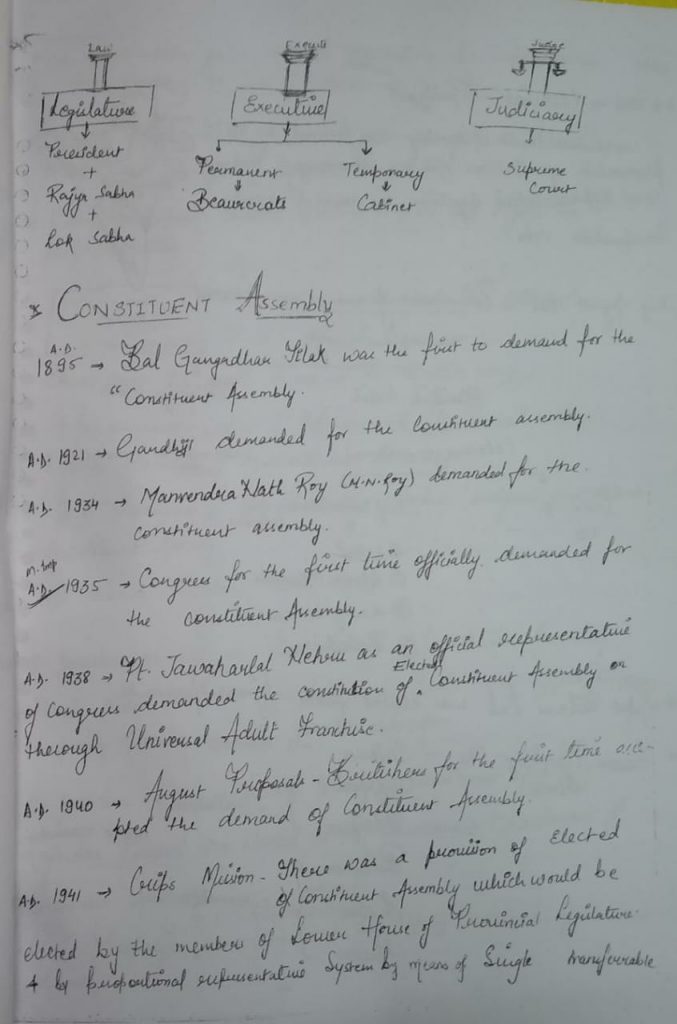 Law
Execute
Judge
Legislature
Executive
Judiciary
President
+
Rajya Sabha
+
Lok Sabha
Permanent
Beaurcrats
Temporary
Cabinet
Supreme
Court
* CONSTITUENT Assembly
A.D. 1895 → Bal Gangadhar Tilak was the first to demand for the
"Constituent Assembly.
A.D. 1921 → Gandhiji demanded for the Constituent assembly.
A.D. 1934 → Manvendra Nath Roy (M.N. Roy) demanded for the
constituent assembly.
A.D. 1935 → Congress for the first time officially demanded for
the constituent Assembly.
A.D. 1938 → Pt. Jawaharlal Nehru as an official representative
of Congress demanded the constitution of Elected Constituent Assembly or
through Universal Adult Franchise.
A.D. 1940 → August Proposals - Britishers for the first time acce-
pted the demand of Constituent Assembly.
A.D. 1941 → Crips Mission - There was a provision of elected
of Constituent Assembly which would be
elected by the members of Lower House of Provincial Legislature
& by proportional representative System by means of Single transferrable